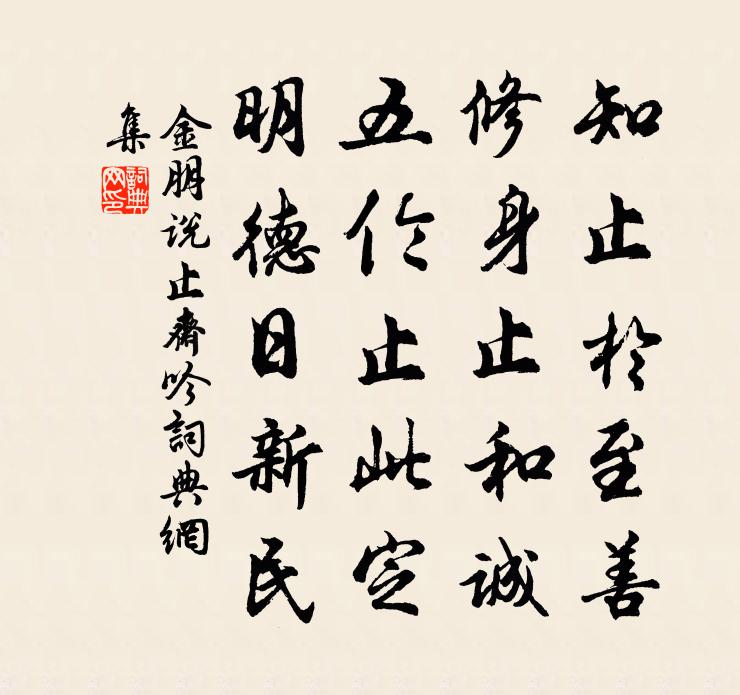 知止於至善
修身止和诚
五伦止此定
明德日新民
金朋说止齋吟詞典網
集
詞典
网印